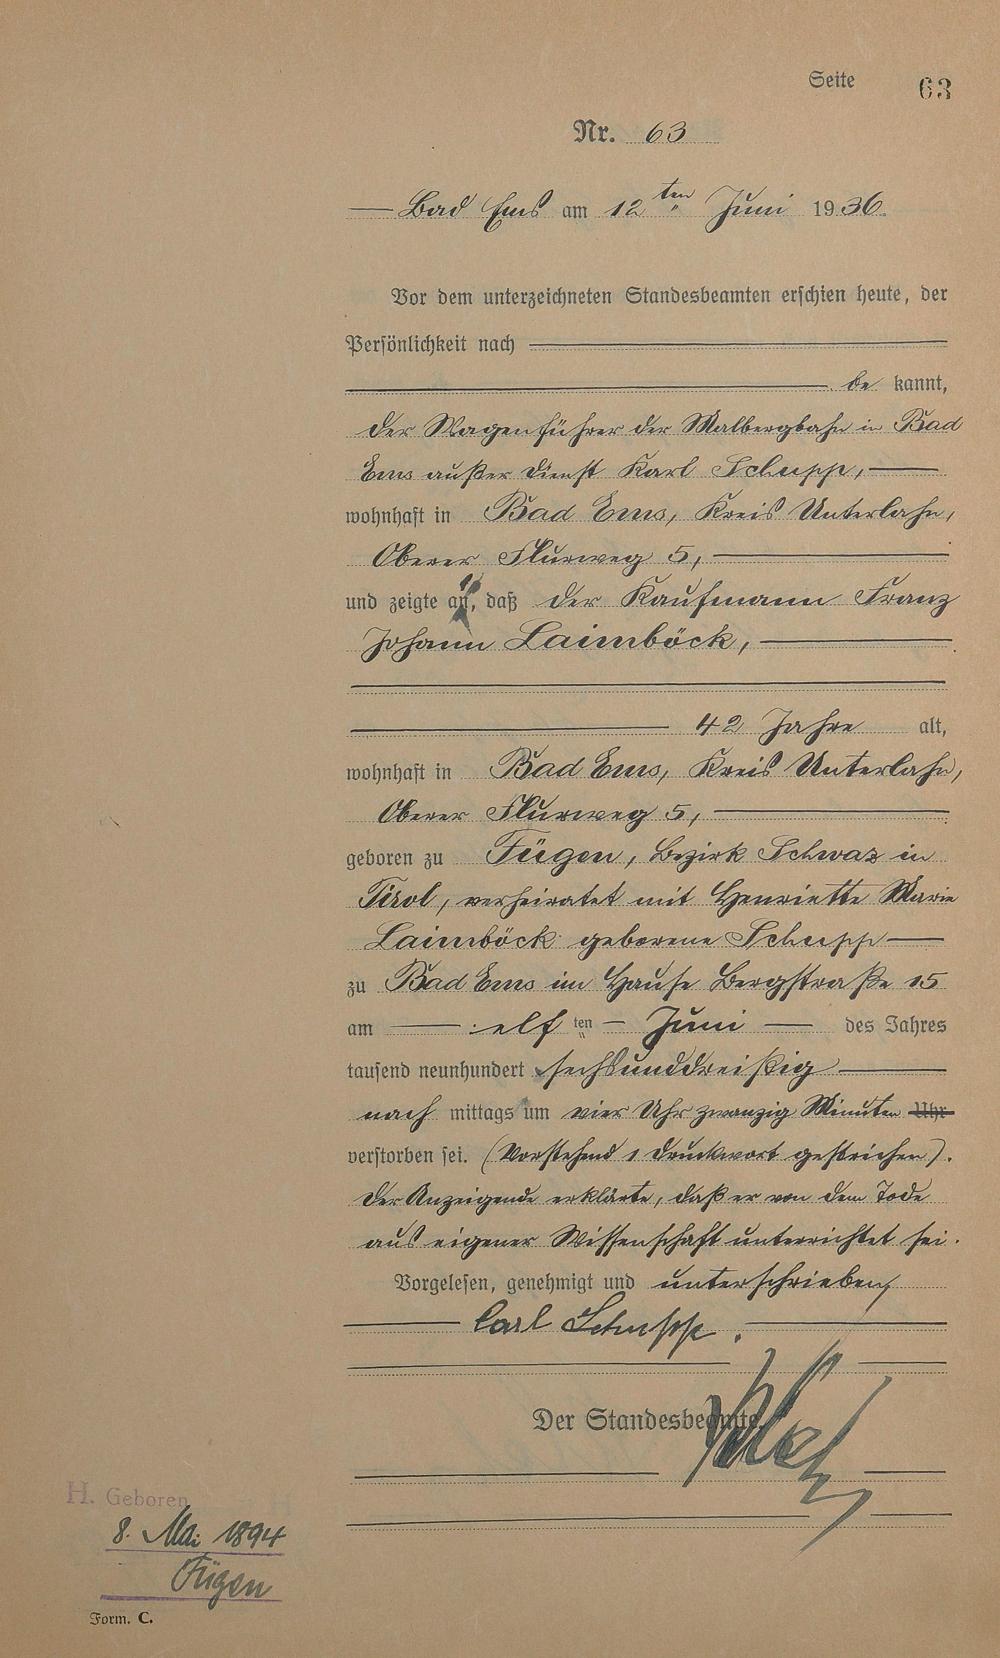 Seite 63
Nr. 63
Bad Ems am 12ten Juni 1936.
Vor dem unterzeichneten Standesbeamten erschien heute, der
Persönlichkeit nach
be kannt,
der Wagenführer der Malbergbahn in Bad
Ems außer Dienst Karl Schupp,
wohnhaft in Bad Ems, Kreis Unterlahn,
Oberer Flurweg 5,
und zeigte an, daß der Kaufmann Franz
Johann Laimböck,
42 Jahre alt,
wohnhaft in Bad Ems, Kreis Unterlahn,
Oberer Flurweg 5,
geboren zu Fügen, Bezirk Schwaz in
Tirol, verheiratet mit Henriette Marie
Laimböck geborene Schupp
zu Bad Ems im Hause Bergstraße 15
am elften Juni des Jahres
tausend neunhundert sechsunddreißig
nach mittags um vier Uhr zwanzig Minuten Uhr
verstorben sei. (Vorstehend 1 Druckwort gestrichen).
Der Anzeigende erklärte, daß er von dem Tode
aus eigener Wissenschaft unterrichtet sei.
Vorgelesen, genehmigt und unterschrieben
Carl Schupp.
Der Standesbeamte.
H. Geboren
8. Mai 1894
Fügen
Form. C.